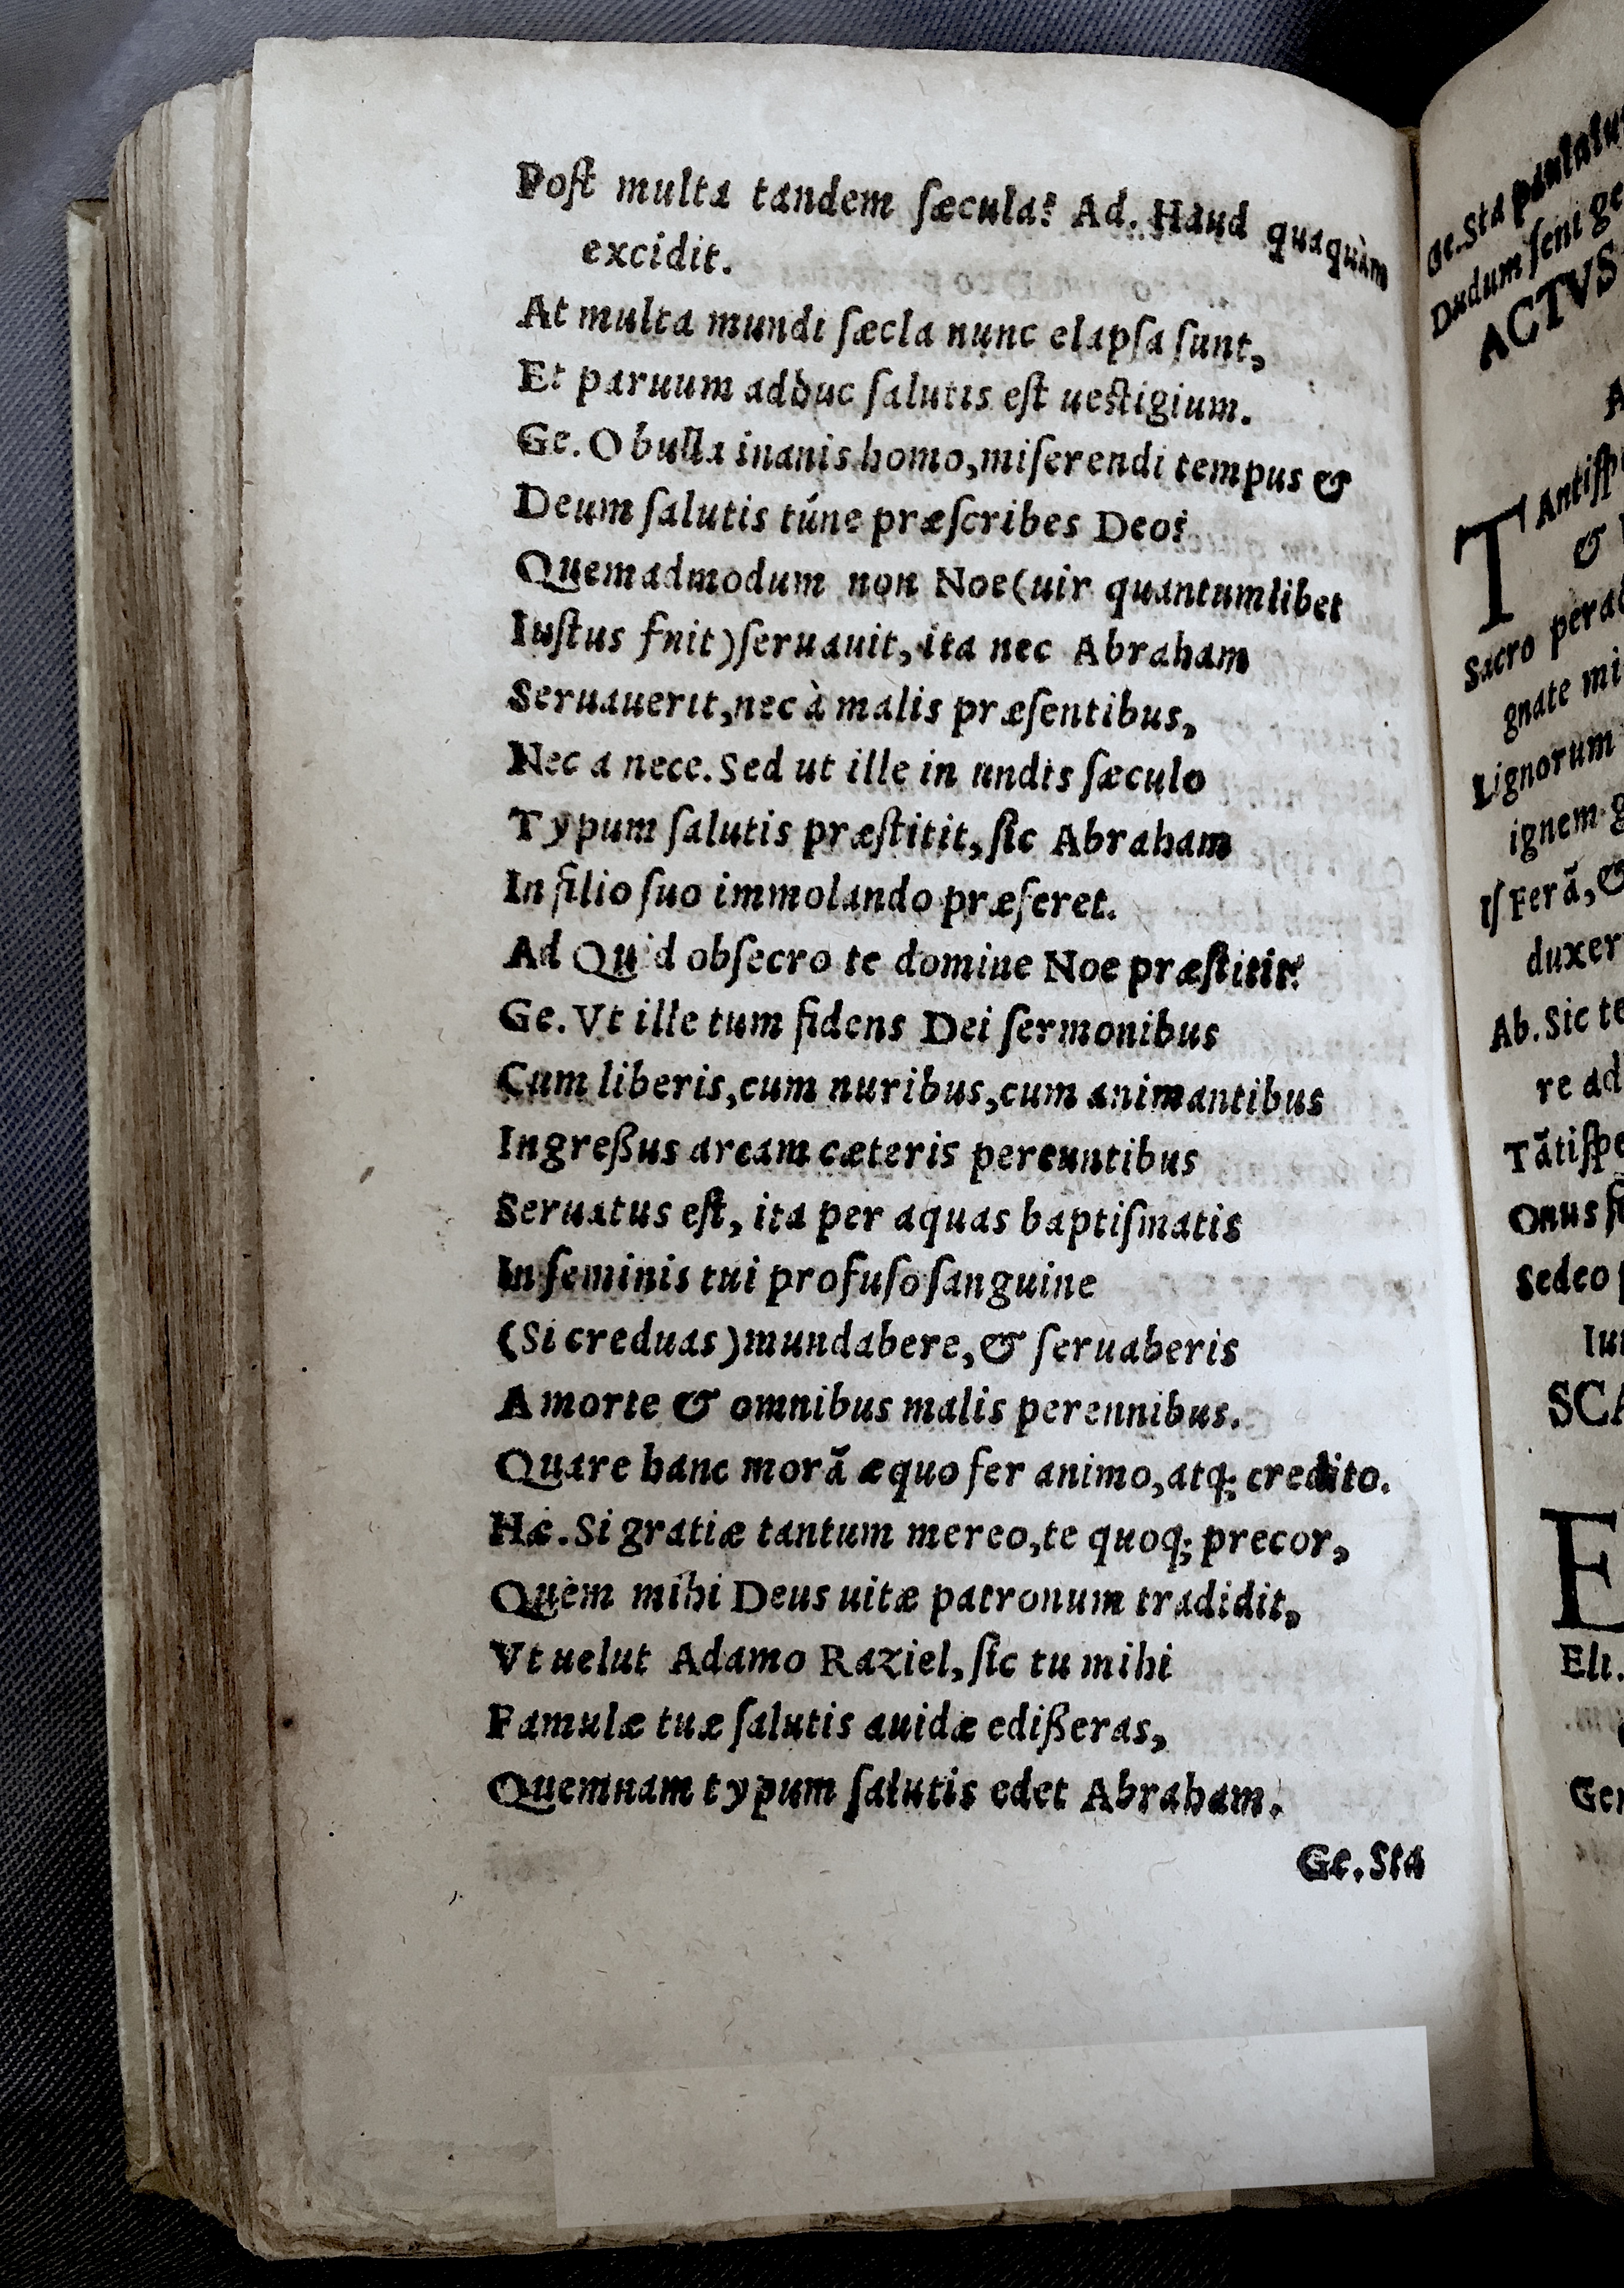 Poſt multa tandem ſæcula? Ad. Haud quaquàm
excidit.
At multa mundi ſæcla nunc elapſa ſunt,
Et paruum adhuc ſalutis eſt ueſtigium.
Ge. O bulla inanis homo, miſerendi tempus &
Deum ſalutis túne præſcribes Deo?
Quemadmodum non Noe (uir quantumlibet
Iuſtus fnit) ſeruauit, ita nec Abraham
Seruauerit, nec à malis præſentibus,
Nec a nece. Sed ut ille in undis ſæculo
Typum ſalutis præſtitit, ſic Abraham
In filio ſuo immolando præferet.
Ad Quid obſecro te domine Noe præſtitit?
Ge. Vt ille tum fidens Dei ſermonibus
Cum liberis, cum nuribus, cum animantibus
Ingreßus arcam cæteris pereuntibus
Seruatus eſt, ita per aquas baptiſmatis
In ſeminis tui profuſo ſanguine
(Si creduas) mundabere, & ſeruaberis
A morte & omnibus malis perennibus.
Quare hanc morā æquo fer animo, atq; credito.
Hæ. Si gratiæ tantum mereo, te quoq; precor,
Quèm mihi Deus uitæ patronum tradidit,
Vt uelut Adamo Raziel, ſic tu mihi
Famulæ tuæ ſalutis auidæ edißeras,
Quemnam typum ſalutis edet Abraham.
Ge. Sta
Ge. Sta paulalu
Dudum ſent ge
ACTVS
T Antiſp
&
Sacro perac
gnate mi
Lignorum
ignem g
Iſ Ferā, &
duxer
Ab. Sic te
re ad
Tātiſpe
Onus ſ
Sedeo
Iu
SCA
E
Eli.
Ger